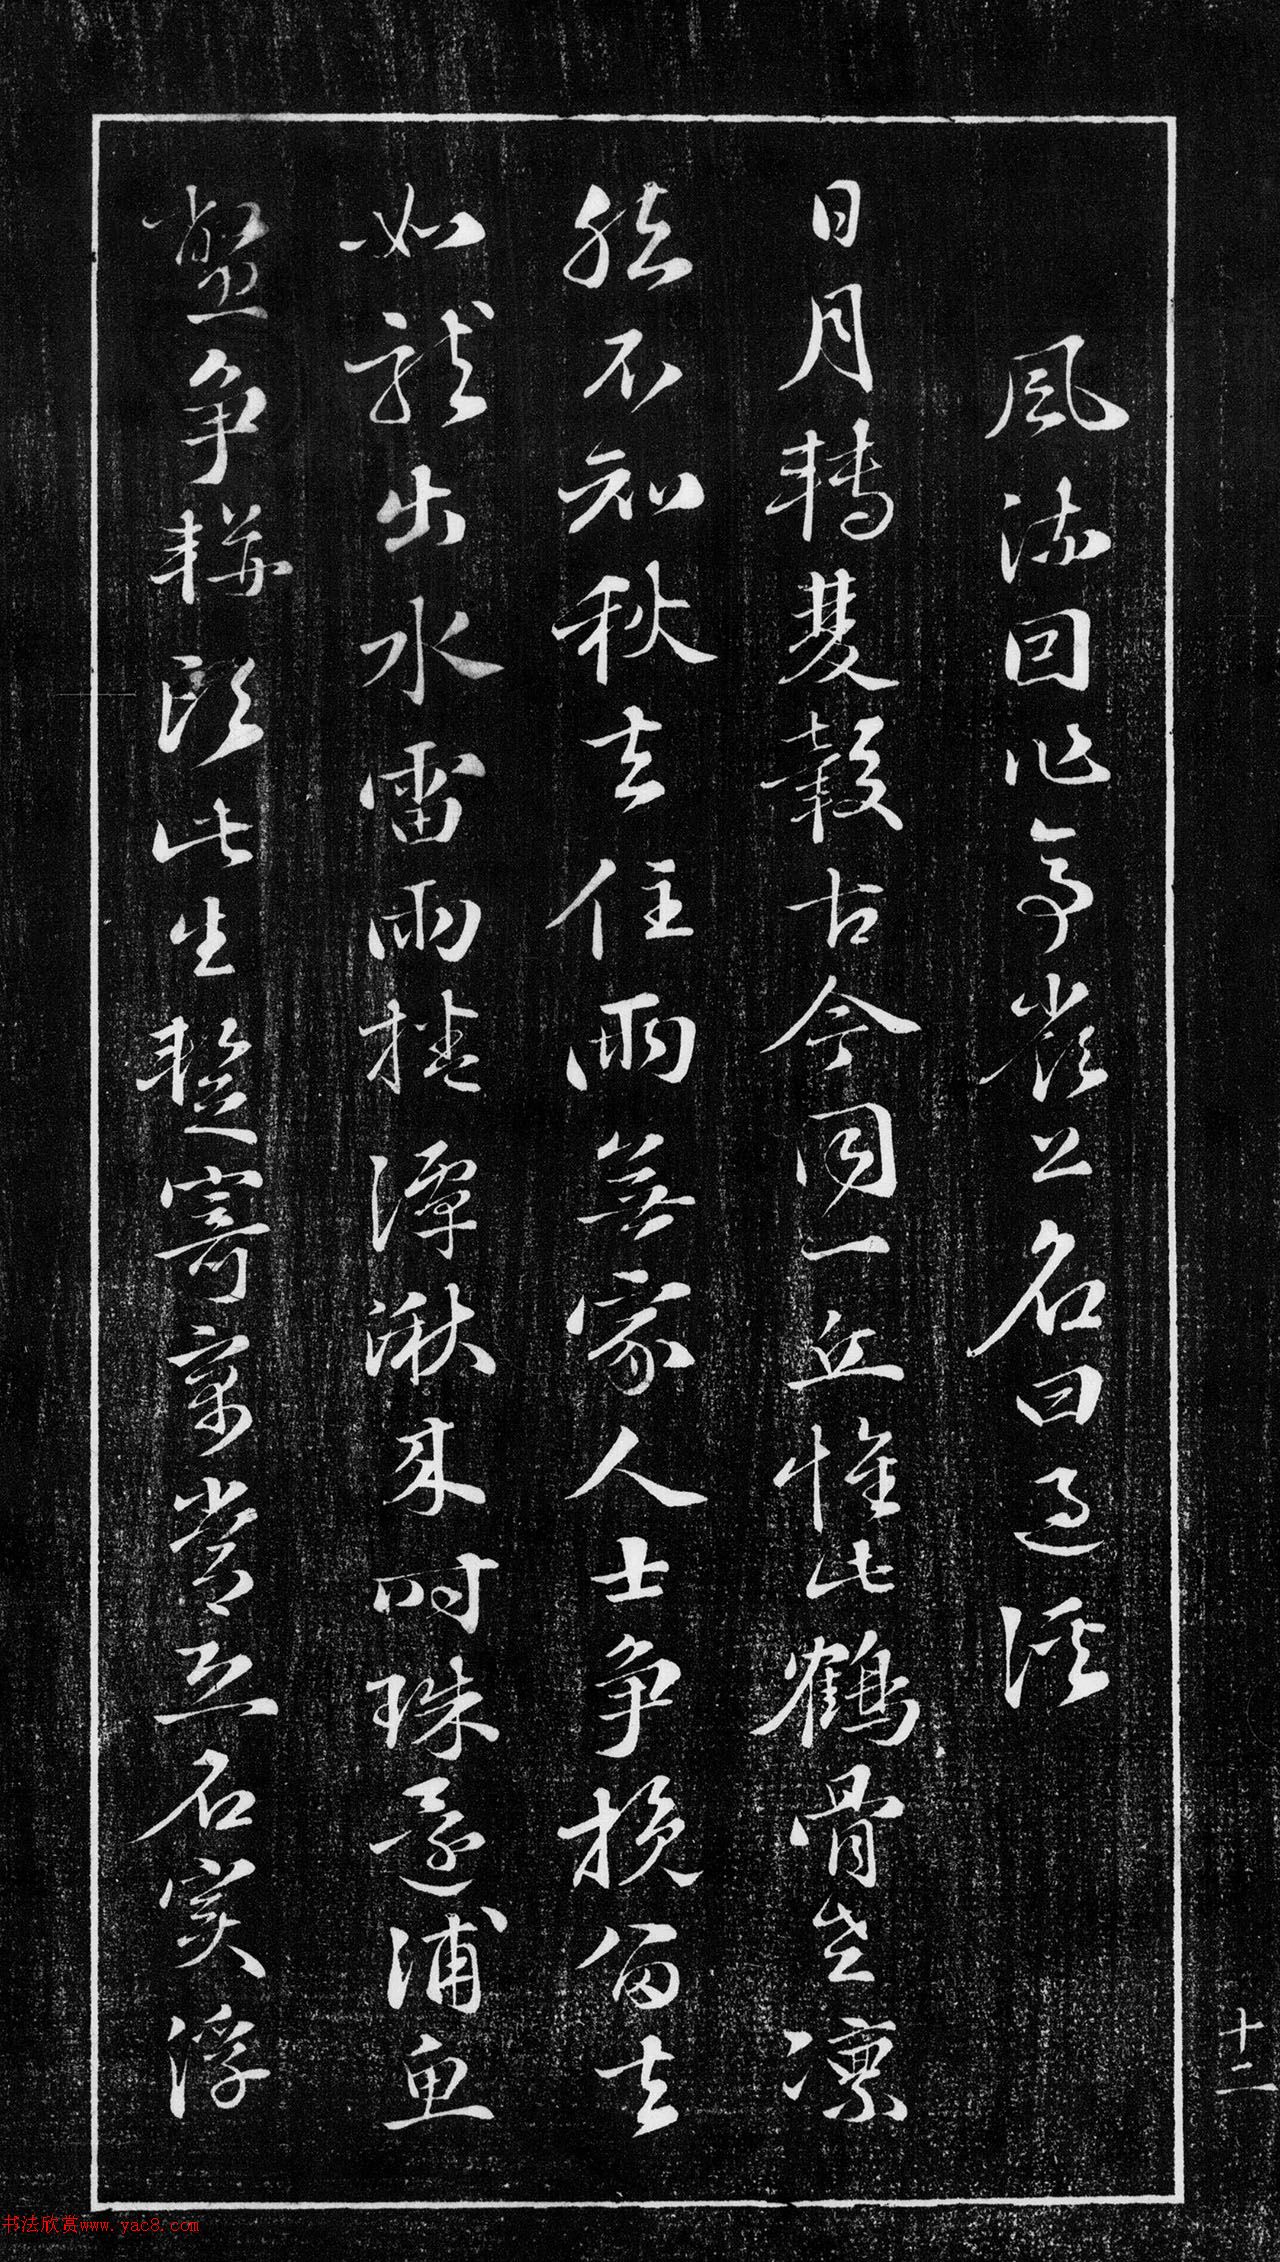 風流因作亭嶺上名曰過溪
日月轉雙轂古今同一丘惟此鶴骨老凜
然不知秋去住兩無家人士爭挽留去
如龍出水雷雨捲潭湫來時珠還浦魚
鱉爭駢頭此生暫寄寓常恐名實浮
十二
书法欣赏www.yac8.com